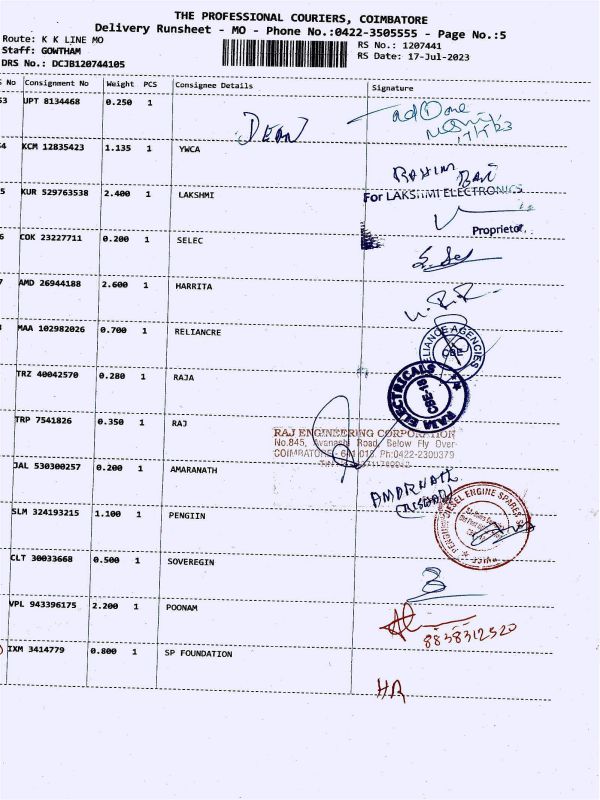 THE PROFESSIONAL COURIERS, COIMBATORE
Delivery Runsheet - MO - Phone No.:0422-3505555 - Page No.:5
Route: K K LINE MO
Staff: GOWTHAM
DRS No.: DCJB120744105
RS No.: 1207441
RS Date: 17-Jul-2023
S No Consignment No Weight PCS Consignee Details Signature
53 UPT 8134468 0.250 1 DEAN
54 KCM 12835423 1.135 1 YWCA
RAHIM
5 KUR 529763538 2.400 1 LAKSHMI For LAKSHMI ELECTRONICS
Proprietor
6 COK 23227711 0.200 1 SELEC
7 AMD 26944188 2.600 1 HARRITA
MAA 102982026 0.700 1 RELIANCRE
RELIANCE AGENCIES
CBE
TRZ 40042570 0.280 1 RAJA
RAJA ELECTRICALS
CBE-18
TRP 7541826 0.350 1 RAJ
RAJ ENGINEERING CORPORATION
No.845, Avanashi Road, Below Fly Over
COIMBATORE - 641 018. Ph:0422-2300379
JAL 530300257 0.200 1 AMARANATH
AMARNATH
SLM 324193215 1.100 1 PENGIIN
DIESEL ENGINE SPARES
CLT 30033668 0.500 1 SOVEREGIN
VPL 943396175 2.200 1 POONAM
8838312520
IXM 3414779 0.800 1 SP FOUNDATION
HR